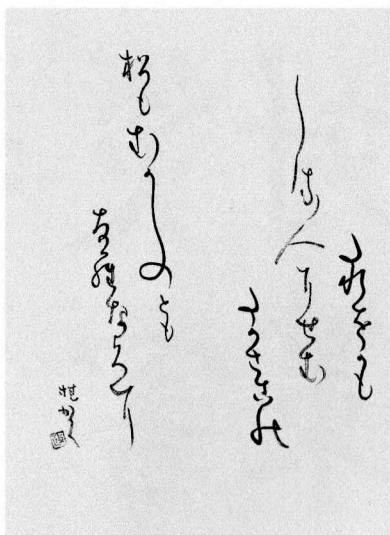 たれをかも
しる人にせむ
たかさこの
松もむかしのとも
ならなくに